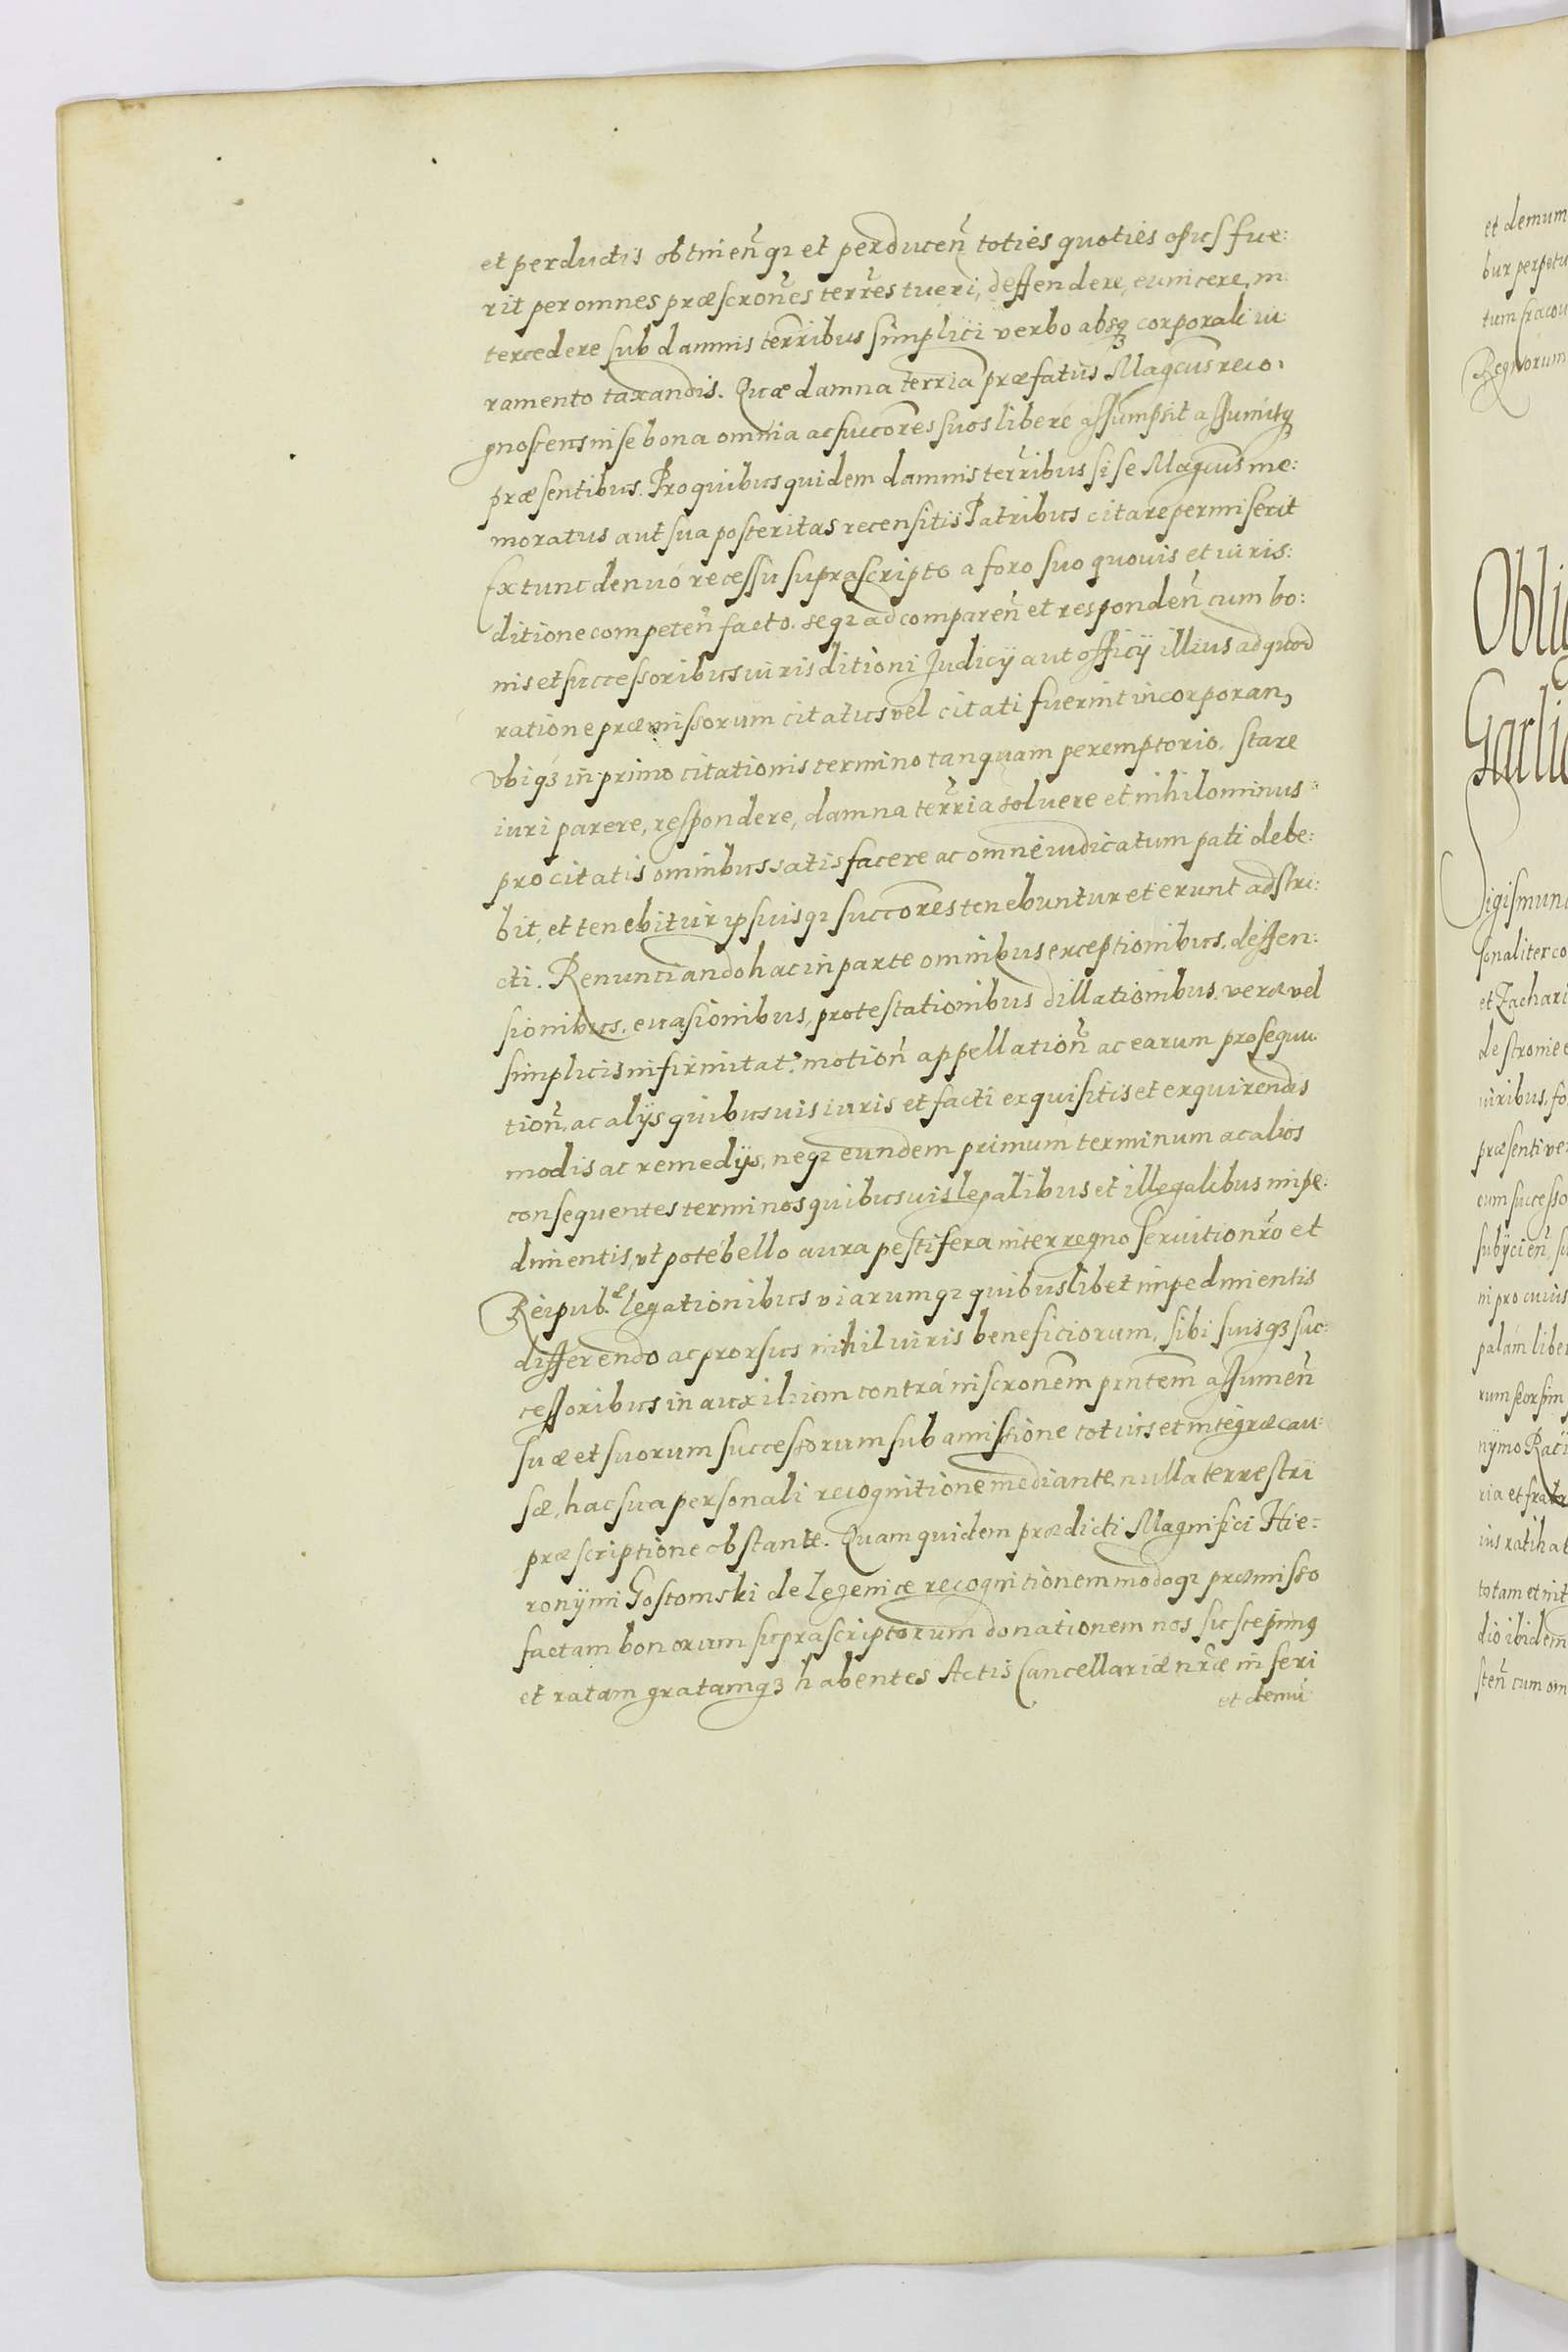 et perductis obtineñ q3 et perduceñ toties quoties opus fue:
rit per omnes præscrоñes terr̃es tueri, deffendere, euincere, in
tercedere sub damnis terr̃ibus simplici verbo absq3 corporali iu:
ramento taxandis. Quæ damna terr̃ia præfatus Magcus reco:
gnoscens in se bona omnia ac succ̃ores suos liberé assumpsit assumitq3
præsentibus. Pro quibus quidem damnis terr̃ibus si se Magcus me:
moratus aut sua posteritas recensitis Patribus citare permiserit
Ex tunc denuó recessu suprascripto a foro suo quouis et iuris:
ditione competeñ facto. seq3 ad compareñ et respondeñ cum bo:
nis et successoribus iurisditioni Judicÿ aut officÿ illius ad quod
ratione præmissorum citatus vel citati fuerint incorporan,
vbi q3 in primo citationis termino tanquam peremptorio, stare
iuri parere, respondere, damna terr̃ia soluere et nihilominus
pro citatis omnibus satisfacere ac omne iudicatum pati debe:
bit, et tenebitur ipsuisq3 succ̃ores tenebuntur et erunt adstri:
cti. Renunciando hac in parte omnibus exceptionibus, deffen:
sionibus, euasionibus, protestationibus dillationibus, veræ vel
simplicis infirmitat. motioñ appellatioñ ac earum prosequu:
tioñ, ac alÿs quibusuis iuris et facti exquisitis et exquirendis
modis ac remedÿs, neq3 eundem primum terminum ac alios
consequentes terminos quibusuis legalibus et illegalibus impe:
dimentis, vt poté bello aura pestifera interregno seruitio nr̃o et
Reipub. legationibus viarumq3 quibuslibet impedimentis
differendo ac prorsus nihil iuris beneficiorum, sibi suisq3 suc:
cessoribus in auxilium contrá inscronem pntem assumeñ
suæ et suorum successorum sub amissione totius et integræ cau:
sæ, hac sua personali recognitione mediante, nulla terrestri
præscriptione obstante. Quam quidem prædicti Magnifici Hie:
ronÿmi Gostomski de Lezenice recognitionem modoq3 præmisso
factam bonorum suprascriptorum donationem nos suscepimus
et ratam gratamq3 habentes Actis Cancellariæ nr̃æ inseri
et demũ
et demum
bur perpetu
Regnorum
Oblig
Garlic
Sigismund
sonaliter co
et Zachari
uiribus, fo
præsenti ve
cum successo
subÿcieñ, su
ni pro cuius
palám liber
rum seorsim
nÿmo Racÿ
ria et fratr
ius ratihat
totam et int
dio ibidem
steñ cum om